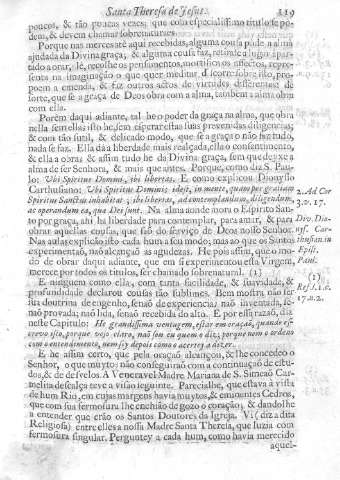 Santa Theresa de Jesus. 219
poucos, & tão poucas vezes; que com especialissimo titulo se podem,
& devem chamar sobrenaturaes.
Porque nas merces até aqui recebidas, alguma cousa póde a alma
ajudada da Divina graça; & alguma cousa faz, retirase a lugar apartado
a orar, lê, recolhe os pensamentos, mortifica os affectos, representa
na imaginação o que quer meditar, discorre sobre isso, propoem
a emenda, & faz outros actos de virtudes differentes: de
sorte, que se a graça de Deos obra com a alma, tambem a alma obra
com ella.
Porèm daqui adiante, tal he o poder da graça na alma, que obra
nella sem ella; isto he, sem esperar estas suas presentes diligencias;
& com tão sutil, & delicado modo, que se a graça o não faz tudo,
nada se faz. Ella dá a liberdade mais realçada, ella o consentimento,
& ella a obra; & assim tudo he da Divina graça, sem que deyxe a
alma de ser Senhora, & mais que antes. Porque, como diz S. Paulo:
Ubi Spiritus Domini, ibi libertas. E como explicou Dionysio
Carthusiano: Ubi Spiritus Domini: idest, in mente, quam per gratiam
Spiritus Sanctus inhabitat; ibi libertas, ad contemplandum, diligendum,
ac operandum ea, quæ Dei sunt. Na alma aonde mora o Espirito Santo
por graça, ahi ha liberdade para contemplar, para amar, & para
obrar aquellas cousas, que são do serviço de Deos nosso Senhor.
Nas aulas explicão isto cada hum a seu modo; mas ao que os Santos
experimentão, não alcanção as agudezas. He pois assim, que o modo
de obrar daqui adiante, que em si experimentou esta Virgem,
merece por todos os titulos, ser chamado sobrenatural. (1)
E ninguem como ella, com tanta facilidade, & suavidade, &
profundidade declarou cousas tão sublimes. Bem mostra não ser
sua doutrina de engenho, senaõ de experiencia; não inventada, senaõ
provada; não lida, senão recebida do alto. E por essa razaõ, diz
neste Capitulo: He grandissima ventagem, estar em oraçaõ, quando escrevo
isto, porque vejo claro, naõ sou eu quem o diz; porque nem o ordeno
com o entendimento, nem sey depois como o acertey a dizer.
E he assim certo, que pela oraçaõ alcançou, & lhe concedeo o
Senhor, o que muytos não conseguiraõ com a continuação de estudos,
& de desvelos. A Veneravel Madre Mariana de S. Simeaõ Carmelita
descalça teve a visaõ seguinte. Pareciálhe, que estava à vista
de hum Rio, em cujas margens havia muytos, & eminentes Cedros,
que com sua fermosura lhe enchiaõ de gozo o coração; & dandolhe
a entender que eraõ os Santos Doutores da Igreja. Vi: (diz a dita
Religiosa) entre elles a nossa Madre Santa Thereza, que luzia com
fermosura singular. Perguntey a cada hum, como havia merecido
aquel-
2. Ad Cor
3. v. 17.
Dro. Dionys.
Carthusian in
Epist.
Paul.
(1)